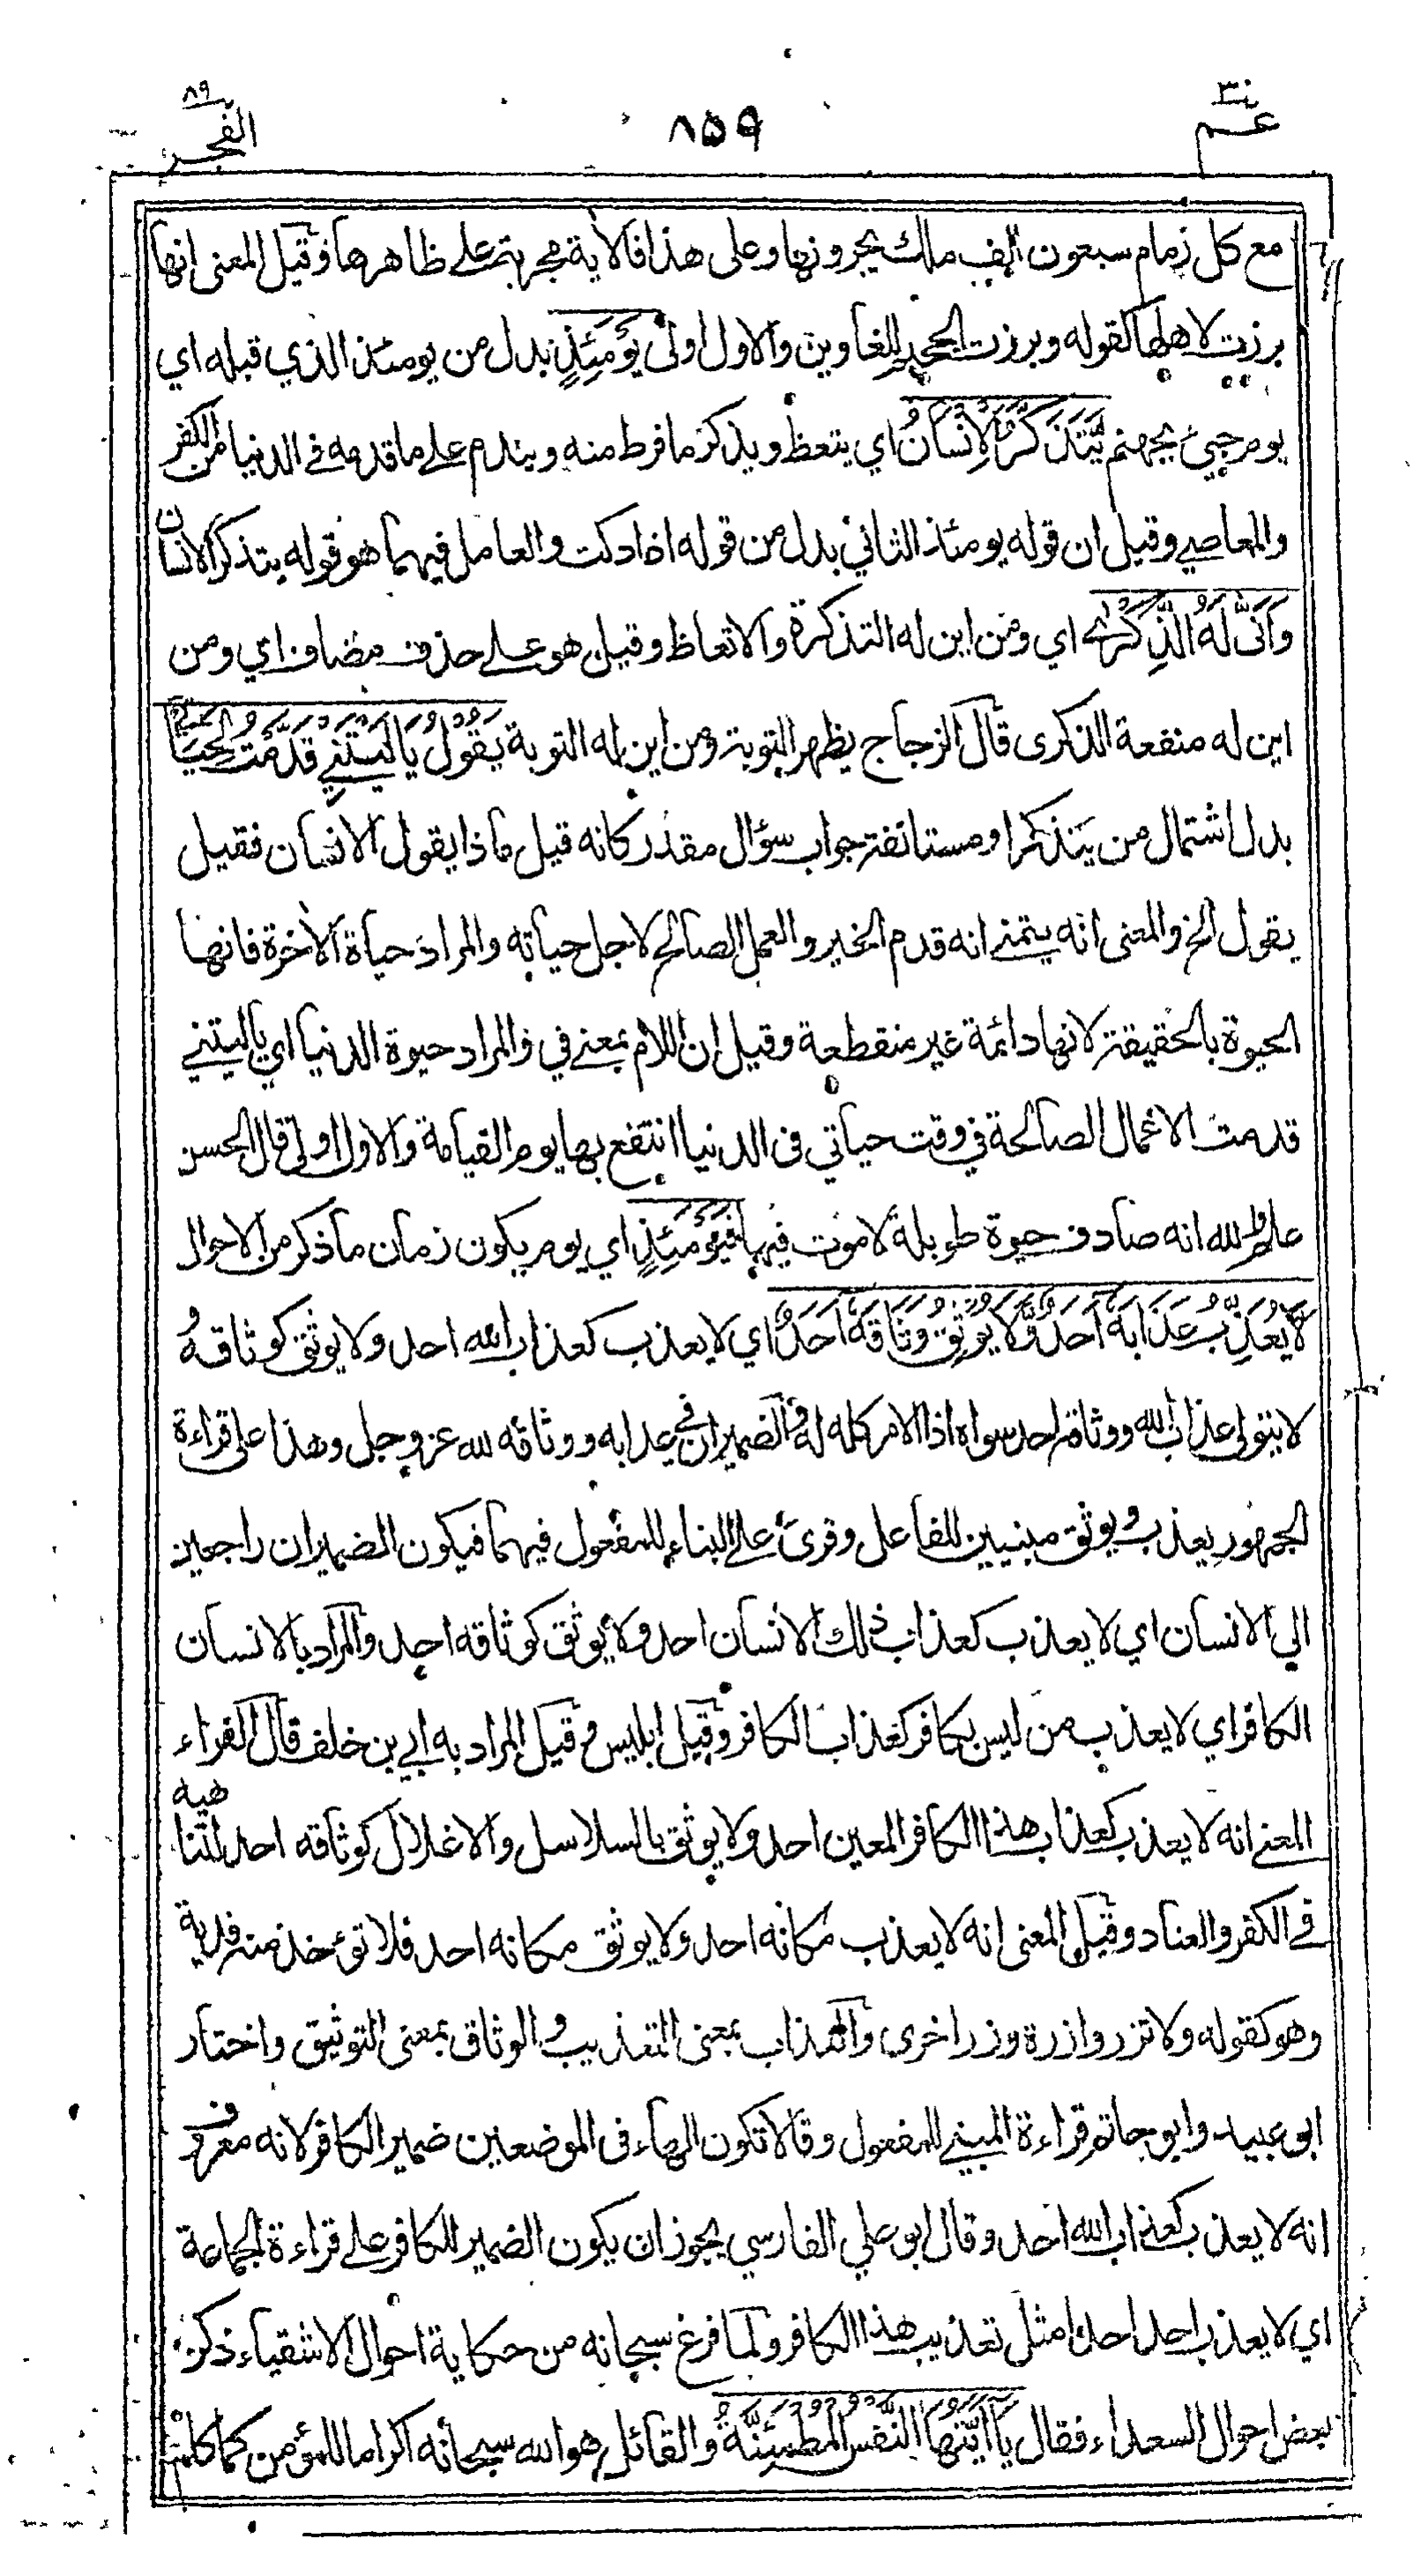 عم ٣٠
٨٥٩
الفجر ٨٩
مع كل زمام سبعون الف ملك يجرونها وعلى هذا فالاية مجرية على ظاهرها وقيل المعنى انها
برزت لاهلها كقوله وبرزت الجحيم للغاوين والاول اولى يَوْمَئِذٍ بدل من يومئذ الذي قبله اي
يوم جيئ بجهنم يَّتَذَكَّرُ الْاِنْسَانُ اي يتعظ ويذكر ما فرط منه ويندم على ما قدمه في الدنيا من الكفر
والمعاصي وقيل ان قوله يومئذ الثاني بدل من قوله اذا دكت والعامل فيهما هو قوله يتذكر الانسان
وَاَنّٰى لَهُ الذِّكْرٰى اي ومن اين له التذكرة والاتعاظ وقيل هو على حذف مضاف اي ومن
اين له منفعة الذكرى قال الزجاج يظهر التوبة ومن اين له التوبة يَقُوْلُ يَا لَيْتَنِيْ قَدَّمْتُ لِحَيَاتِيْ
بدل اشتمال من يتذكر او مستانفة جواب سؤال مقدر كانه قيل ماذا يقول الانسان فقيل
يقول الخ والمعنى انه يتمنى انه قدم الخير والعمل الصالح لاجل حياته والمراد حياة الاخرة فانها
الحيوة بالحقيقة لانها دائمة غير منقطعة وقيل ان اللام بمعنى في والمراد حيوة الدنيا اي يا ليتني
قدمت الاعمال الصالحة في وقت حياتي فى الدنيا انتفع بها يوم القيامة والاول اولى قال الحسن
علم والله انه صادف حيوة طويلة لا موت فيها فَيَوْمَئِذٍ اي يوم يكون زمان ما ذكر من الاحوال
لَّا يُعَذِّبُ عَذَابَهٗ اَحَدٌ وَّلَا يُوْثِقُ وَثَاقَهٗ اَحَدٌ اي لا يعذب كعذاب الله احد ولا يوثق كوثاقه و
لا يتولى عذاب الله ووثاقه احد سواه اذا الامر كله له والضميران في عذابه ووثاقه لله عز وجل وهذا على قراءة
الجمهور يعذب ويوثق مبنيين للفاعل وقرئ على البناء للمفعول فيهما فيكون الضميران راجعين
الي الانسان اي لا يعذب كعذاب ذلك الانسان احد ولا يوثق كوثاقه احد والمراد بالانسان
الكافر اي لا يعذب من ليس بكافر كعذاب الكافر وقيل ابليس وقيل المراد به ابي بن خلف قال الفراء
المعنى انه لا يعذب كعذاب هذا الكافر المعين احد ولا يوثق بالسلاسل والاغلال كوثاقه احد لتناهيه
في الكفر والعناد وقيل المعنى انه لا يعذب مكانه احد ولا يوثق مكانه احد فلا تؤخذ منه فدية
وهو كقوله ولا تزر وازرة وزر اخرى والعذاب بمعنى التعذيب والوثاق بمعنى التوثيق واختار
ابو عبيد وابو حاتم قراءة المبني للمفعول وقالا تكون الهاء فى الموضعين ضمير الكافر لانه معروف
انه لا يعذب كعذاب الله احد وقال ابو علي الفارسي يجوز ان يكون الضمير للكافر على قراءة الجماعة
اي لا يعذب احد احدا مثل تعذيب هذا الكافر ولما فرغ سبحانه من حكاية احوال الاشقياء ذكر
بعض احوال السعداء فقال يَا اَيَّتُهَا النَّفْسُ الْمُطْمَئِنَّةُ والقائل هو الله سبحانه اكراما للمؤمن كما كلم